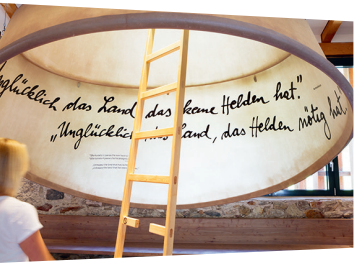 Unglücklich das Land das keine Helden hat".
„Unglücklich das Land, das Helden nötig hat"